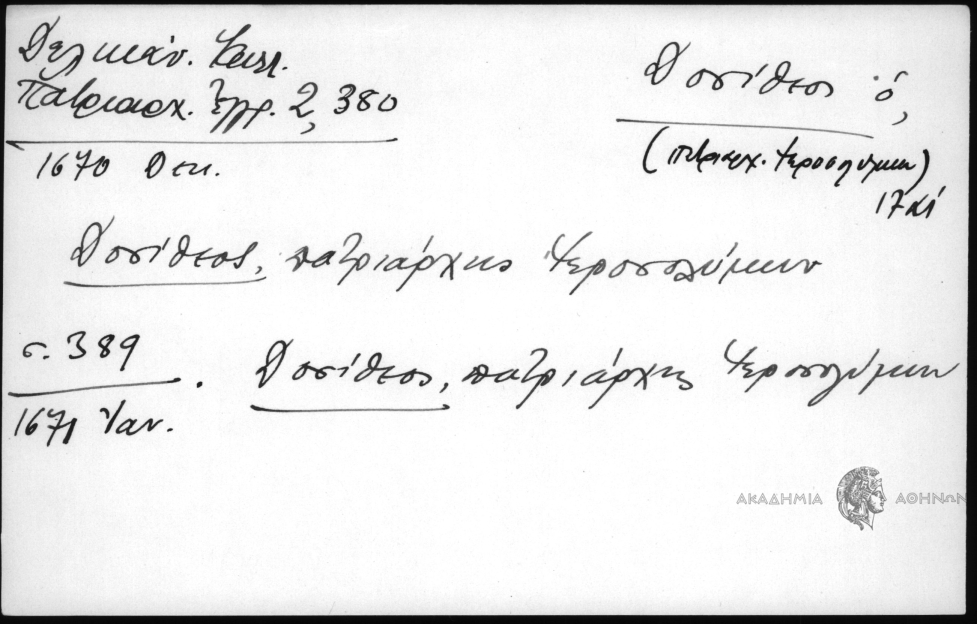 Δελικάν. Καλλ.
Πατριαρχ. Ἔγγρ. 2, 380
1670 Δεκ.
Δοσίθεος ὁ,
(πατριαρχ. Ἱεροσολύμων)
17 αἰ
Δοσίθεος, πατριάρχης Ἱεροσολύμων
σ. 389
1671 Ἰαν.
Δοσίθεος, πατριάρχης Ἱεροσολύμων
ΑΚΑΔΗΜΙΑ ΑΘΗΝΩΝ